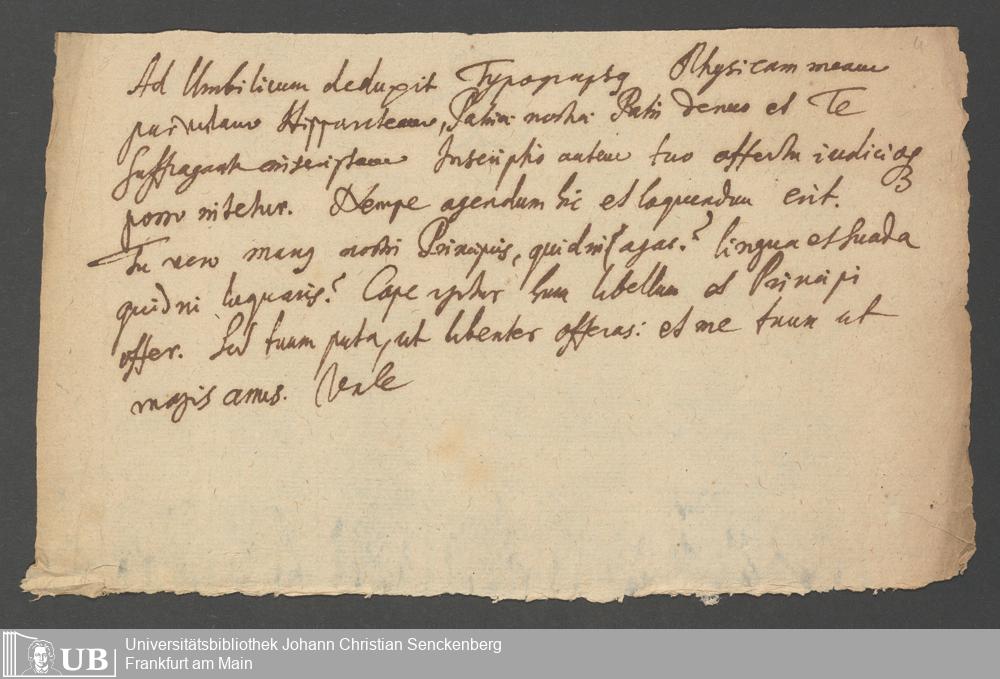 Ad Umbilicum deduxit Typographꝰ Physicam meam
Hipporateam, Patriæ nostræ Patri denuo et Te
suffragante inscriptam Inscriptio autem tuo affectu iudicioqꝫ
porro nitetur. Nempe agendum hic et loquendum erit.
Tu vero manꝰ nostri Principis, quidni agas? lingua et suada
quidni loquaris? Cape igitur hunc libellum et Principi
offer. Sed tuum puta, ut libenter offeras: et me tuum ut
magis ames. Vale
UB
Universitätsbibliothek Johann Christian Senckenberg
Frankfurt am Main